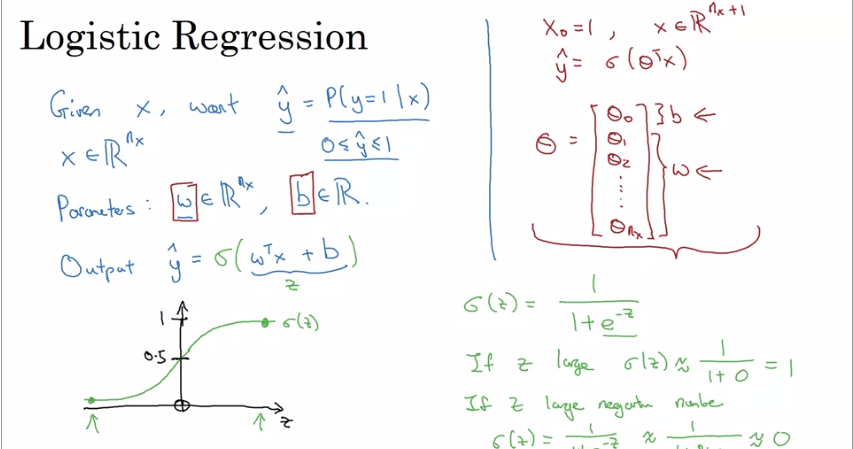 Logistic Regression
Given x, want ŷ = P(y=1|x)
x ∈ ℝ^{n_x}
0 ≤ ŷ ≤ 1
Parameters: w ∈ ℝ^{n_x}, b ∈ ℝ.
Output ŷ = σ(wᵀx + b)
z
1
σ(z)
0.5
0
z
x₀ = 1, x ∈ ℝ^{n_x+1}
ŷ = σ(θᵀx)
θ = [θ₀ } b ←
θ₁
θ₂ } w ←
⋮
θ_{n_x}]
σ(z) = 1 / (1 + e^{-z})
If z large σ(z) ≈ 1 / (1 + 0) = 1
If z large negative number
σ(z) = 1 / (1 + e^{-z}) ≈ ≈ 0